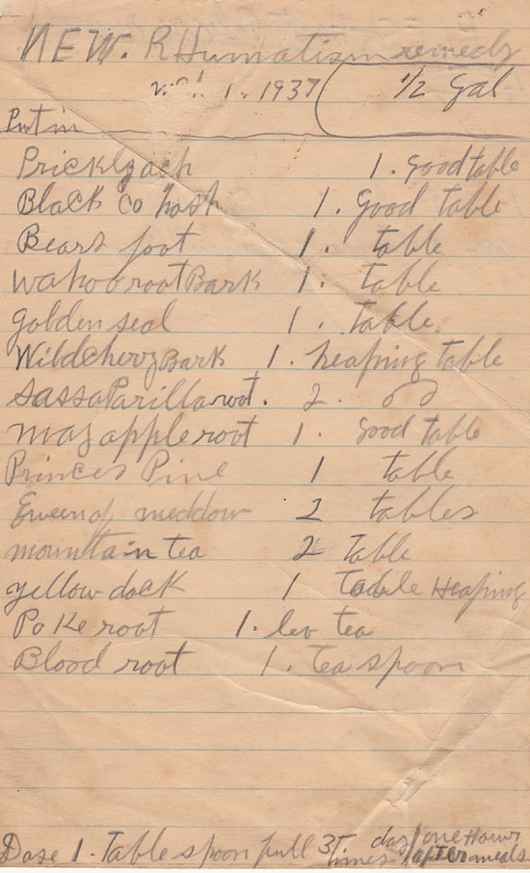 NEW. RHumatism remedy
1. 1937 1/2 gal
Put in
Pricklyash 1. good table
Black Co hosh 1. good table
Bears foot 1. table
wahoo root Bark 1. table
golden seal 1. table.
Wild cherry Bark 1. heaping table
sassaParilla root. 2.
may apple root 1. good table
Princes Pine 1 table
Queen of meddow 2 tables
mountain tea 2 Table
yellow dock 1 table Heaping
Poke root 1. lev tea
Blood root 1. Tea spoon
Dose 1. Table spoon full 3 times day one Hour after meals